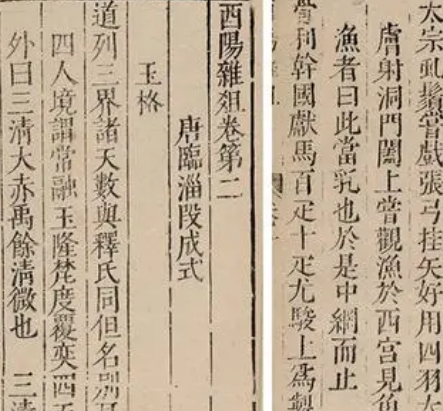 太宗虬鬚嘗戲張弓挂矢好用四羽大
膚射洞門闔上嘗觀漁於西宮見魚
漁者曰此當乳也於是中網而止
骨利幹國獻馬百疋十疋尤駿上爲製
酉陽雜俎卷第二
唐臨淄段成式
玉格
道列三界諸天數與釋氏同但名別
四人境謂常融玉隆梵度覆奕四天
外曰三清大赤禹餘清微也 三清